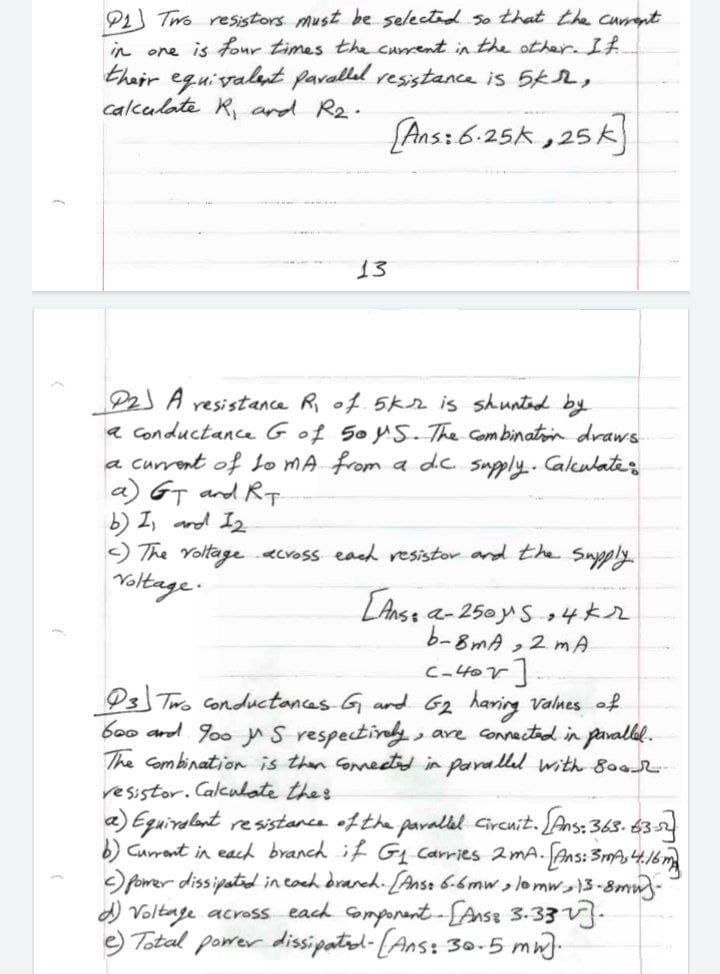 Q1) Two resistors must be selected so that the current
in one is four times the current in the other. If
their equivalent parallel resistance is 5kΩ,
calculate R1 and R2.
[Ans: 6.25K, 25K]
13
Q2) A resistance R1 of 5kΩ is shunted by
a conductance G of 50 μS. The combination draws
a current of 10 mA from a d.c. supply. Calculate:
a) GT and RT
b) I1 and I2
c) The voltage across each resistor and the supply
voltage.
[Ans: a- 250μS, 4kΩ
b- 8mA, 2 mA
c- 40V]
Q3) Two conductances G1 and G2 having values of
600 and 900 μS respectively, are connected in parallel.
The combination is then connected in parallel with 800Ω
resistor. Calculate the:
a) Equivalent resistance of the parallel circuit. [Ans: 363.63Ω]
b) Current in each branch if G1 carries 2mA. [Ans: 3mA, 4.16m]
c) power dissipated in each branch. [Ans: 6.6mw, 10mw, 13.8mw].
d) Voltage across each component. [Ans: 3.33V].
e) Total power dissipated. [Ans: 30.5 mw].